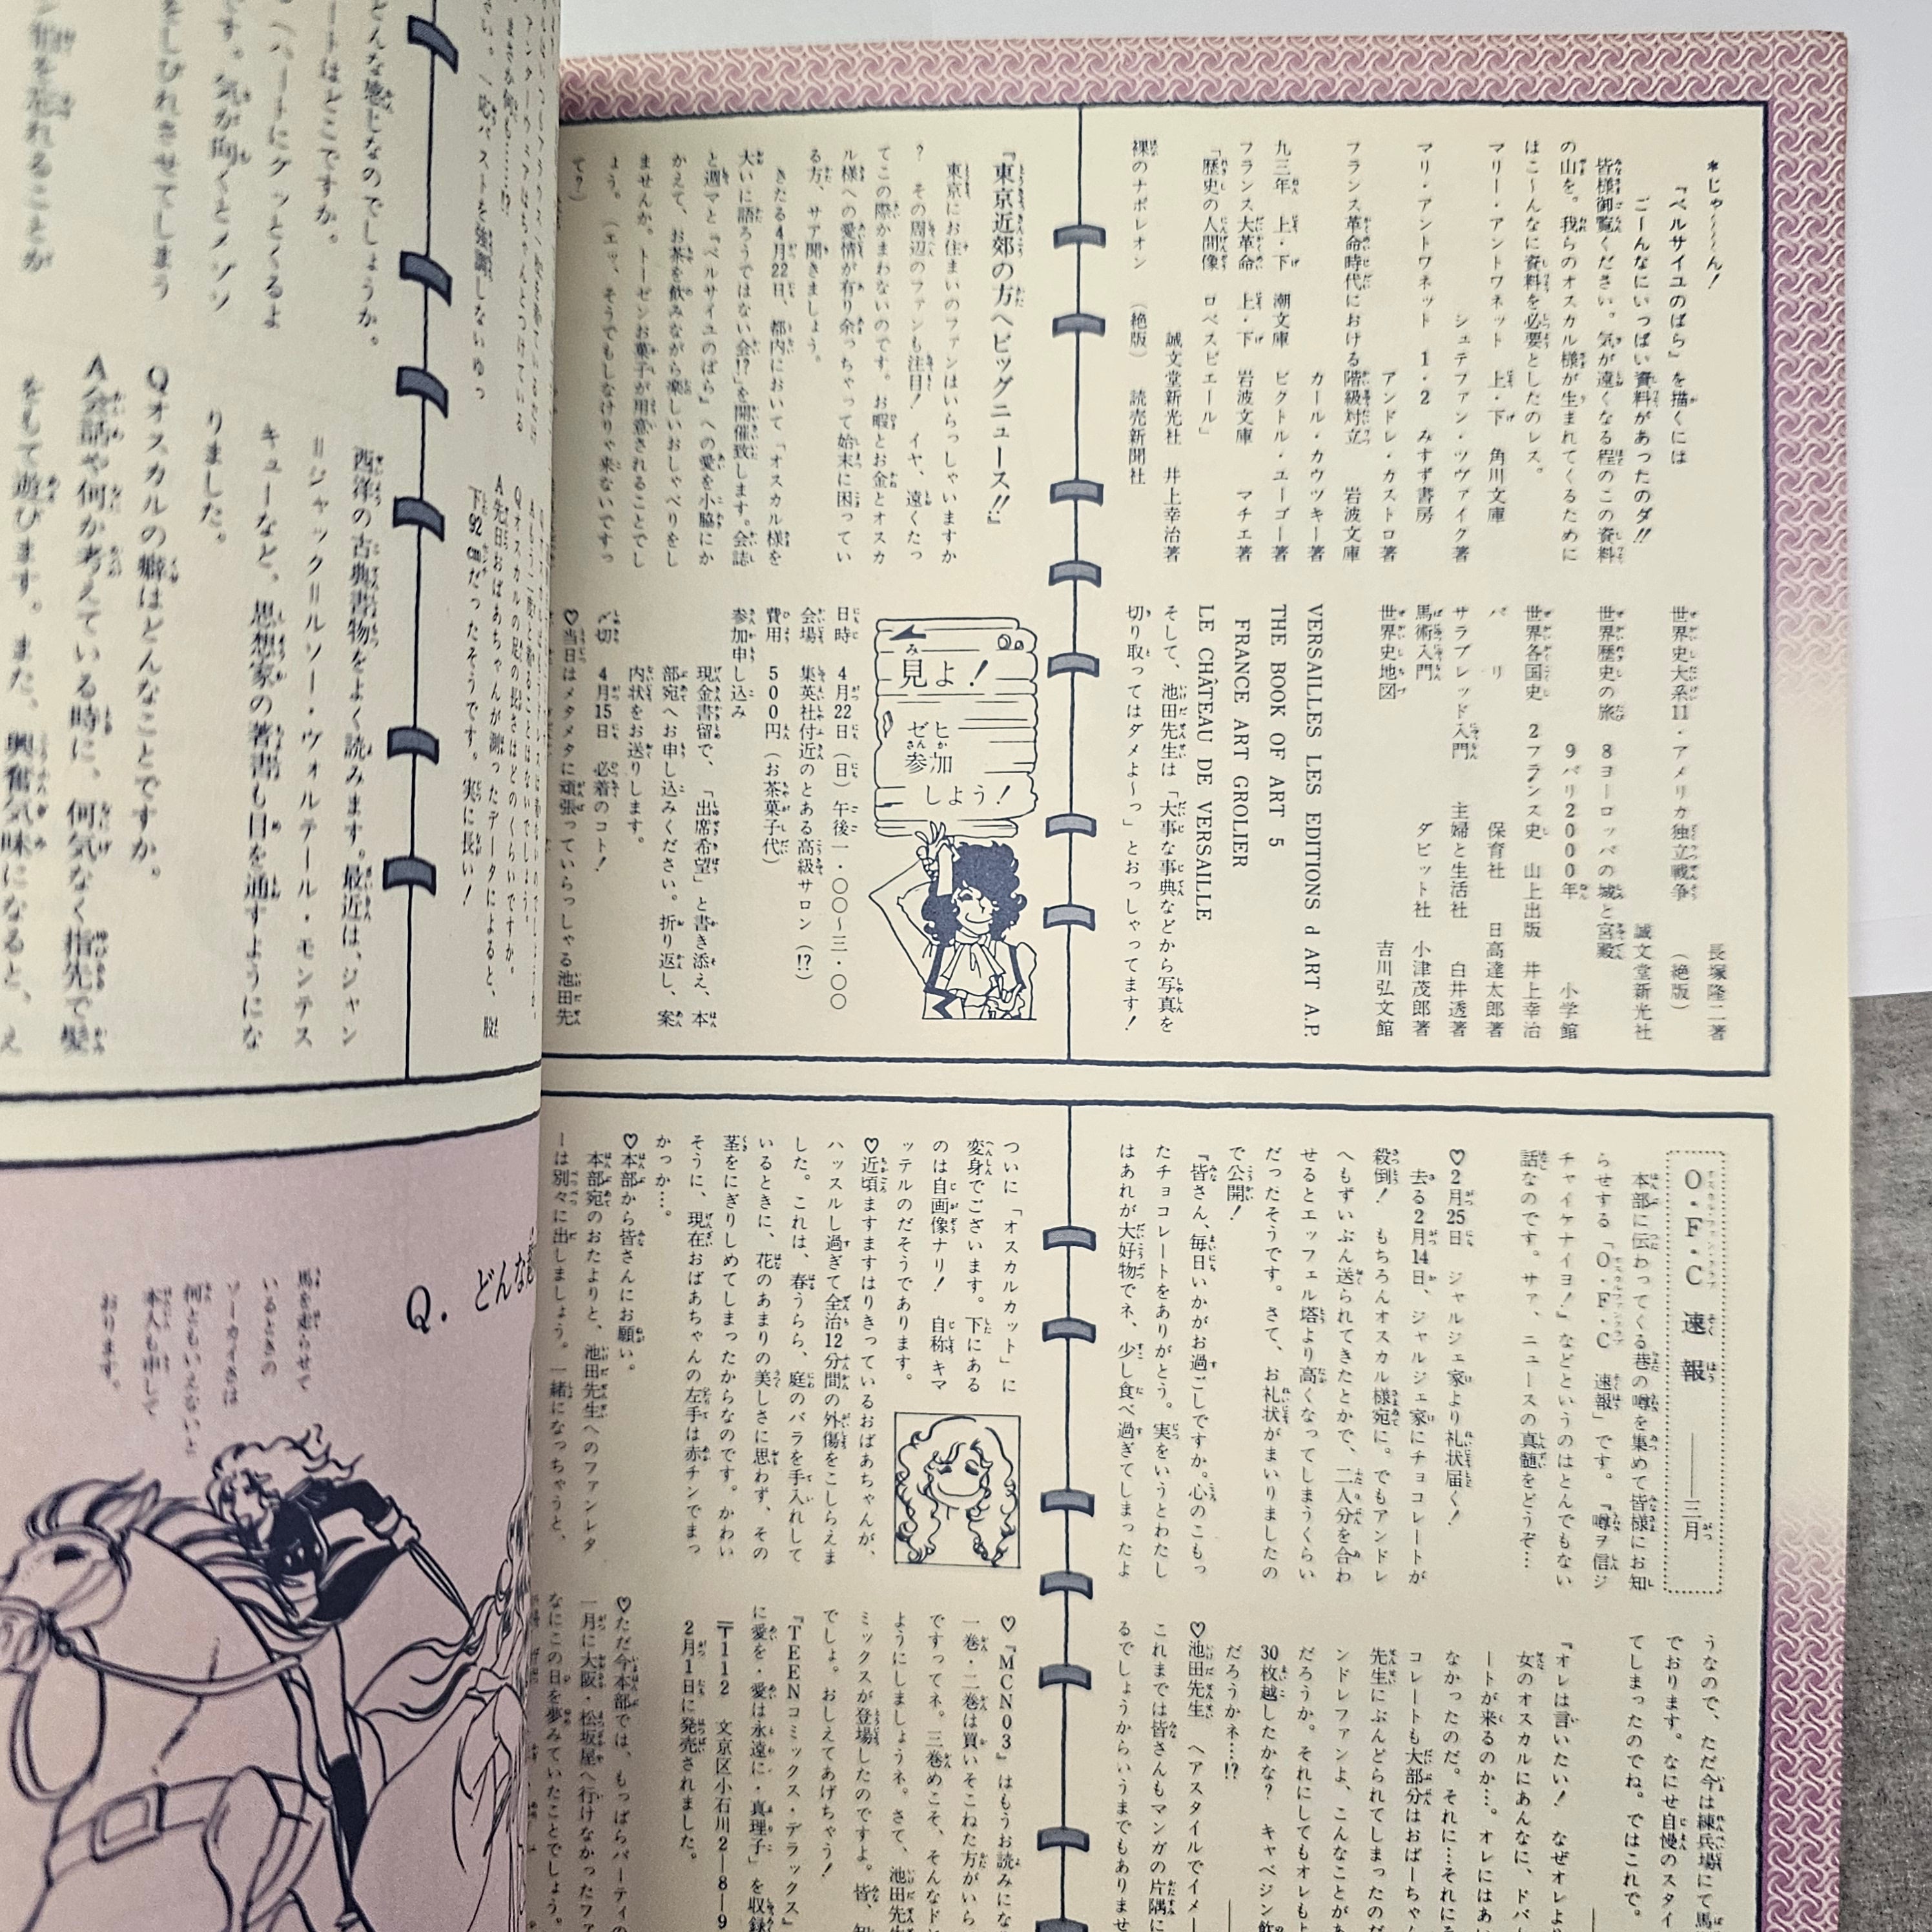 *じゃ~~~ん!
『ベルサイユのばら』を描くには
ごーんなにいっぱい資料があったのダ!!
皆様御覧ください。気が遠くなる程のこの資料
の山を。我らのオスカル様が生まれてくるために
はこ~んなに資料を必要としたのレス。
マリー・アントワネット 上・下 角川文庫
シュテファン・ツヴァイク著
マリ・アントワネット 1・2 みすず書房
アンドレ・カストロ著
フランス革命時代における階級対立 岩波文庫
カール・カウツキー著
九三年 上・下 潮文庫 ビクトル・ユーゴー著
フランス大革命 上・下 岩波文庫 マチエ著
「歴史の人間像 ロベスピエール」
誠文堂新光社 井上幸治著
裸のナポレオン (絶版) 読売新聞社
長塚隆二著
世界史大系11・アメリカ独立戦争 (絶版)
誠文堂新光社
世界歴史の旅 8ヨーロッパの城と宮殿
9パリ2000年 小学館
世界各国史 2フランス史 山上出版 井上幸治
パリ 保育社 日高達太郎著
サラブレッド入門 主婦と生活社 白井透著
馬術入門 ダビット社 小津茂郎著
世界史地図 吉川弘文館
VERSAILLES LES EDITIONS d ART A.P.
THE BOOK OF ART 5
FRANCE ART GROLIER
LE CHÂTEAU DE VERSAILLE
そして、池田先生は「大事な事典などから写真を
切り取ってはダメよ~っ」とおっしゃってます!
『東京近郊の方へビッグニュース!!』
東京にお住まいのファンはいらっしゃいますか
? その周辺のファンも注目! イヤ、遠くたっ
てこの際かまわないのです。お暇とお金とオスカ
ル様への愛情が有り余っちゃって始末に困ってい
る方、サア開きましょう。
きたる4月22日、都内において「オスカル様を
大いに語ろうではない会!?」を開催致します。会誌
と週マと『ベルサイユのばら』への愛を小脇にか
かえて、お茶を飲みながら楽しいおしゃべりをし
ませんか。トーゼンお菓子が用意されることでし
ょう。(エッ、そうでもしなけりゃ来ないですっ
て?)
見よ!
ヒ加
ゼ参
しよう!
日時 4月22日(日)午後一・〇〇~三・〇〇
会場 集英社付近のとある高級サロン(!?)
費用 500円(お茶菓子代)
参加申し込み
現金書留で、「出席希望」と書き添え、本
部宛へお申し込みください。折り返し、案
内状をお送りします。
〆切 4月15日 必着のコト!
♡当日はメタメタに頑張っていらっしゃる池田先
O・F・C 速報 ――三月
本部に伝わってくる巷の噂を集めて皆様にお知
らせする「O・F・C 速報」です。『噂ヲ信ジ
チャイケナイヨ!』などというのはとんでもない
話なのです。サァ、ニュースの真髄をどうぞ…
♡2月25日 ジャルジェ家より礼状届く!
去る2月14日、ジャルジェ家にチョコレートが
殺倒! もちろんオスカル様宛に。でもアンドレ
へもずいぶん送られてきたとかで、二人分を合わ
せるとエッフェル塔より高くなってしまうくらい
だったそうです。さて、お礼状がまいりましたの
で公開!
『皆さん、毎日いかがお過ごしですか。心のこもっ
たチョコレートをありがとう。実をいうとわたし
はあれが大好物でネ、少し食べ過ぎてしまったよ
うなので、ただ今は練兵場にて馬
でおります。なにせ自慢のスタイ
てしまったのでね。ではこれで。
『オレは言いたい! なぜオレより
女のオスカルにあんなに、ドバ
ートが来るのか…。オレにはあ
なかったのだ。それに…それに
コレートも大部分はおばーちゃん
先生にぶんどられてしまったのだ
ンドレファンよ、こんなことがあ
だろうか。それにしてもオレもよ
30枚越したかな? キャベジン飲
だろうかネ…!?
♡池田先生 ヘアスタイルでイメー
これまでは皆さんもマンガの片隅に
るでしょうからいうまでもありませ
ついに「オスカルカット」に
変身でございます。下にある
のは自画像ナリ! 自称キマ
ッテルのだそうであります。
♡近頃ますますはりきっているおばあちゃんが、
ハッスルし過ぎて全治12分間の外傷をこしらえま
した。これは、春うらら、庭のバラを手入れして
いるときに、花のあまりの美しさに思わず、その
茎をにぎりしめてしまったからなのです。かわい
そうに、現在おばあちゃんの左手は赤チンでまっ
かっか…。
♡本部から皆さんにお願い。
本部宛のおたよりと、池田先生へのファンレタ
ーは別々に出しましょう。一緒になっちゃうと、
♡『MCN03』はもうお読みにな
一巻・二巻は買いそこねた方がいら
ですってネ。三巻めこそ、そんなド
ようにしましょうネ。さて、池田先生
ミックスが登場したのですよ。皆、知
でしょ。おしえてあげちゃう!
『TEENコミックス・デラックス』
に愛を・愛は永遠に・真理子」を収録
〒112 文京区小石川2―8―9
2月1日に発売されました。
♡ただ今本部では、もっぱらパーティの
一月に大阪・松坂屋へ行けなかったファ
なにこの日を夢みていたことでしょう。
どんな感じなのでしょうか。
ートはどこですか。
(ハートにグッとくるよ
す。気が向くとメゾソ
をしびれさせてしまう
を忘れることが
さい。一応バストを強調しないゆっ
西洋の古典書物をよく読みます。最近は、ジャン
=ジャック=ルソー・ヴォルテール・モンテス
キューなど、思想家の著書も目を通すようにな
りました。
Qオスカルの癖はどんなことですか。
A会話や何か考えている時に、何気なく指先で髪
をもて遊びます。また、興奮気味になると、え
Qオスカルの足の長さはどのくらいですか。
A先日おばあちゃんが測ったデータによると、股
下92cmだったそうです。実に長い!
Q. どんな
馬を走らせて
いるときの
ソーカイさは
何ともいえないと
本人も申して
おります。